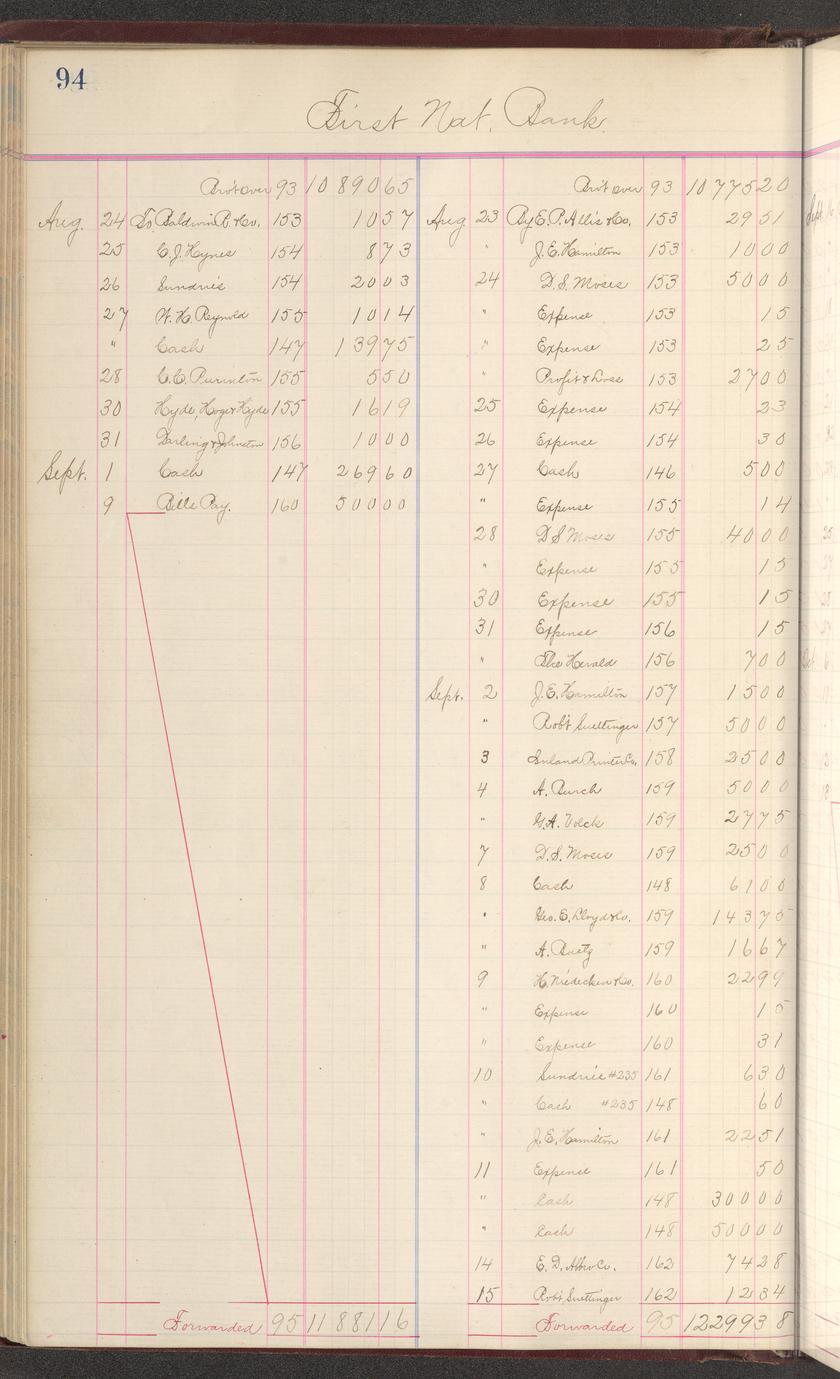 94
First Nat. Bank.
Bro't over 93 10890 65
Aug. 24 To Baldwin P. & Co. 153 10 57
25 C. J. Hynes 154 8 73
26 Sundries 154 20 03
27 W. H. Reynold 155 10 14
" Cash 147 139 75
28 C. C. Purinton 155 5 50
30 Hyde, Hoge & Hyde 155 16 19
31 Darling & Johnston 156 10 00
Sept. 1 Cash 147 269 60
9 Bills Pay. 160 500 00
Forwarded 95 11881 16
Bro't over 93 10775 20
Aug 23 By E. P. Allis & Co. 153 29 51
" J. E. Hamilton 153 10 00
24 D. S. Moses 153 50 00
" Expense 153 15
" Expense 153 25
" Profit & Loss 153 27 00
25 Expense 154 23
26 Expense 154 30
27 Cash 146 5 00
" Expense 155 14
28 D S Moses 155 40 00
" Expense 155 15
30 Expense 155 15
31 Expense 156 15
" The Herald 156 7 00
Sept. 2 J. E. Hamilton 157 15 00
" Rob't Suettinger 157 50 00
3 Inland Printer Co. 158 25 00
4 A. Burch 159 50 00
" G. A. Volck 159 27 75
7 D. S. Moses 159 25 00
8 Cash 148 61 00
" Geo. E. Lloyd & Co. 159 143 75
" A. Baetz 159 16 67
9 H. Niedecken & Co. 160 22 99
" Expense 160 15
" Expense 160 31
10 Sundries #235 161 6 30
" Cash #235 148 60
" J. E. Hamilton 161 22 51
11 Expense 161 50
" Cash 148 300 00
" Cash 148 500 00
14 E. D. Albro Co. 162 74 28
15 Rob't Suettinger 162 12 34
Forwarded 95 12299 38